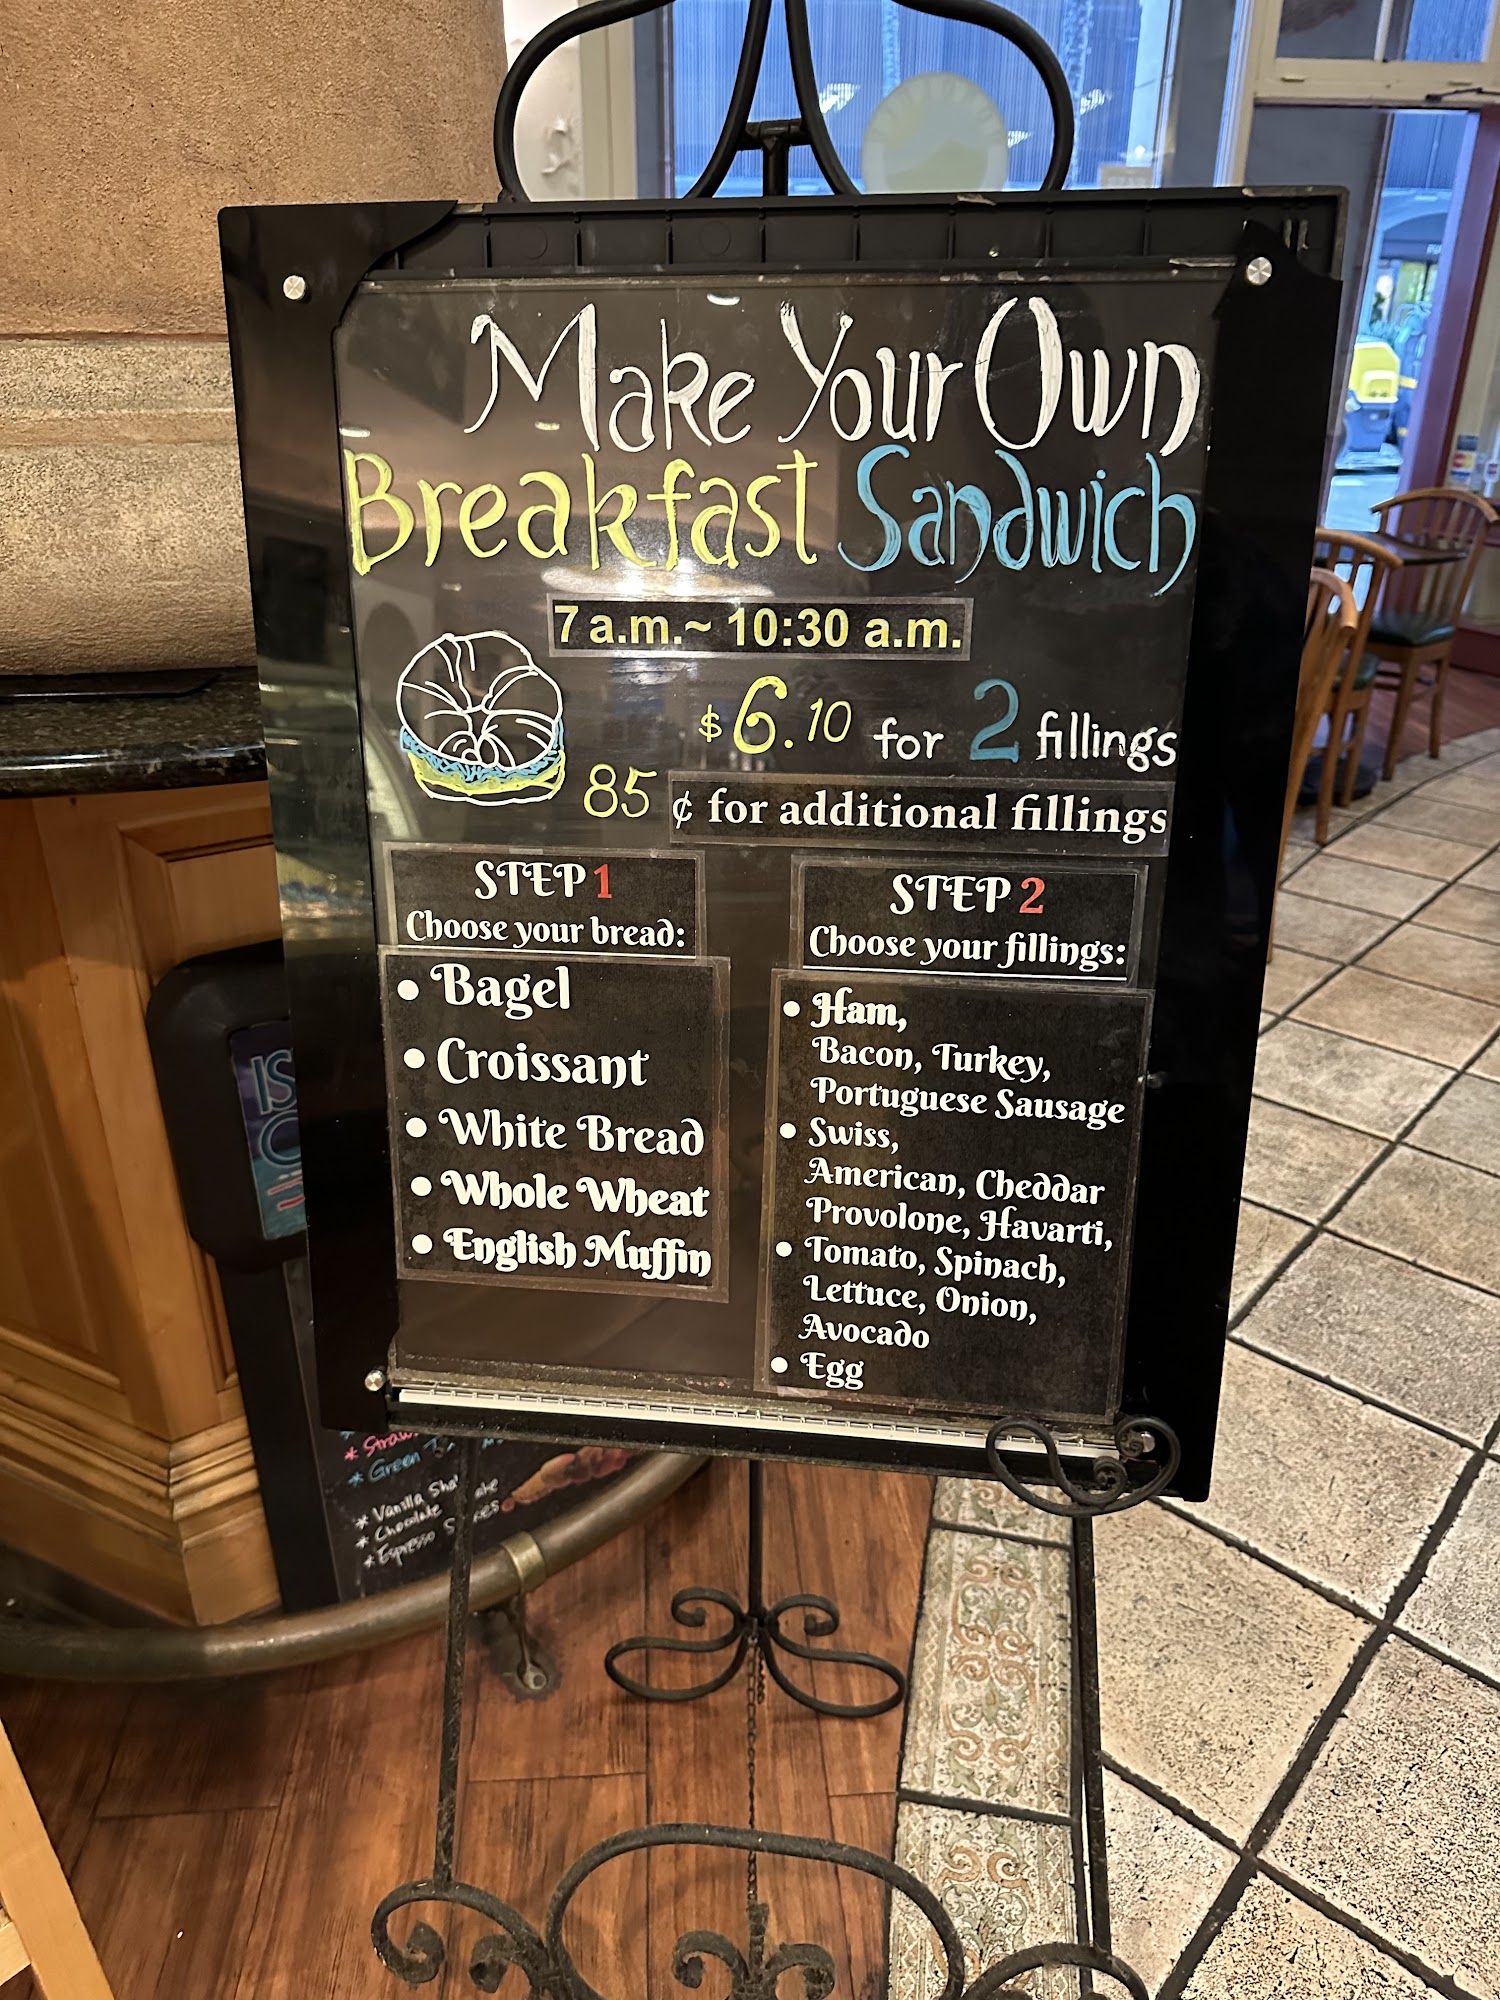 Make Your Own
Breakfast Sandwich
7 a.m.~ 10:30 a.m.
$6.10 for 2 fillings
85 ¢ for additional fillings
STEP 1
Choose your bread:
• Bagel
• Croissant
• White Bread
• Whole Wheat
• English Muffin
STEP 2
Choose your fillings:
• Ham,
Bacon, Turkey,
Portuguese Sausage
• Swiss,
American, Cheddar
Provolone, Havarti,
• Tomato, Spinach,
Lettuce, Onion,
Avocado
• Egg
IS
* Green
* Vanilla
* Chocolate
* Espresso